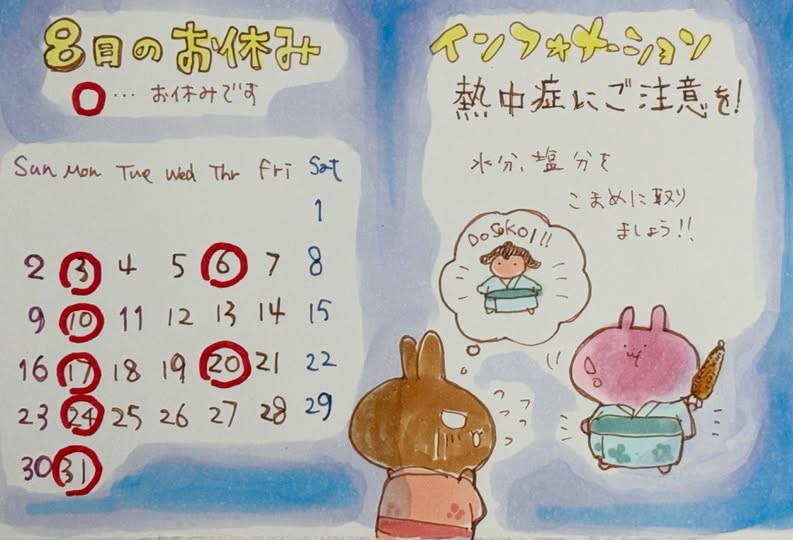 8月のお休み
…お休みです
Sun Mon Tue Wed Thr Fri Sat
1
2 3 4 5 6 7 8
9 10 11 12 13 14 15
16 17 18 19 20 21 22
23 24 25 26 27 28 29
30 31
インフォメーション
熱中症にご注意を!
水分、塩分を
こまめに取り
ましょう!!
DoSuKOI!!